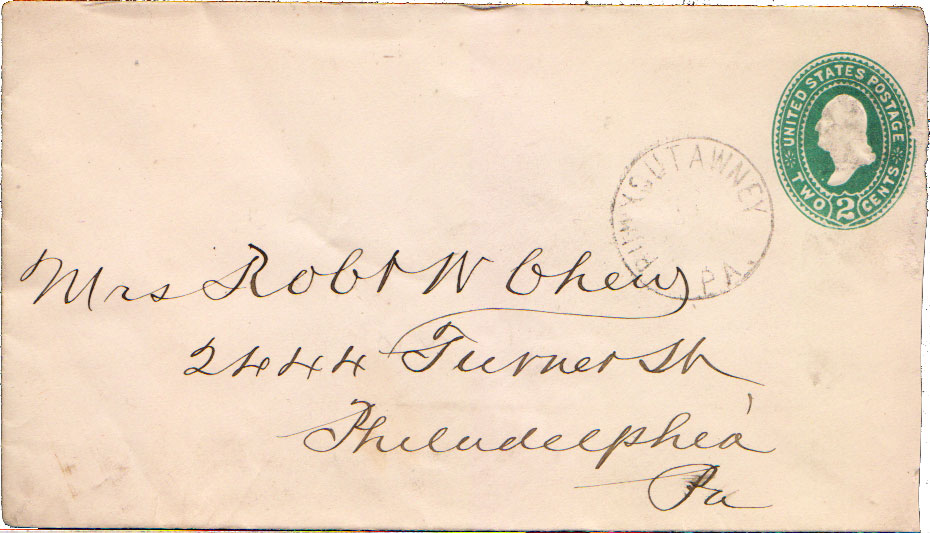 UNITED STATES POSTAGE
TWO 2 CENTS
PUNXSUTAWNEY
PA.
Mrs Robt W Chew
2444 Turner St
Philadelphia
Pa